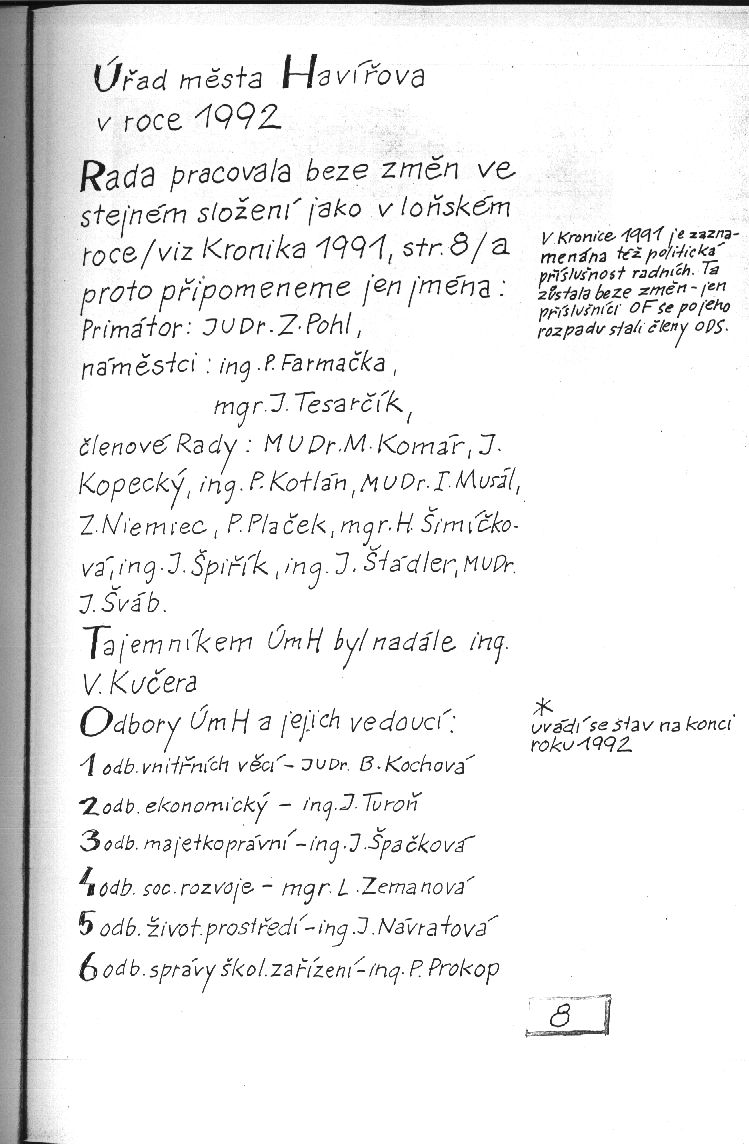 Úřad města Havířova
v roce 1992
Rada pracovala beze změn ve
stejném složení jako v loňském
roce/viz Kronika 1991, str. 8/a
proto připomeneme jen jména :
Primátor: JUDr. Z. Pohl,
náměstci : ing. P. Farmačka,
mgr. J. Tesarčík,
členové Rady : MUDr. M. Komár, J.
Kopecký, ing. P. Kotlán, MUDr. I. Musál,
Z. Niemiec, P. Plaček, mgr. H. Šimíčko-
vá, ing. J. Špiřík, ing. J. Štádler, MUDr.
J. Šváb.
Tajemníkem ÚmH byl nadále ing.
V. Kučera
Odbory ÚmH a jejich vedoucí:
1 odb. vnitřních věcí - JUDr. B. Kochová
2 odb. ekonomický - ing. J. Turoň
3 odb. majetkoprávní - ing. J. Špačková
4 odb. soc. rozvoje - mgr. L. Zemanová
5 odb. život. prostředí - ing. J. Návratová
6 odb. správy škol. zařízení - ing. P. Prokop
V Kronice 1991 je zazna-
menána též politická
příslušnost radních. Ta
zůstala beze změn - jen
příslušníci OF se po jeho
rozpadu stali členy ODS.
*
uvádí se stav na konci
roku 1992
8